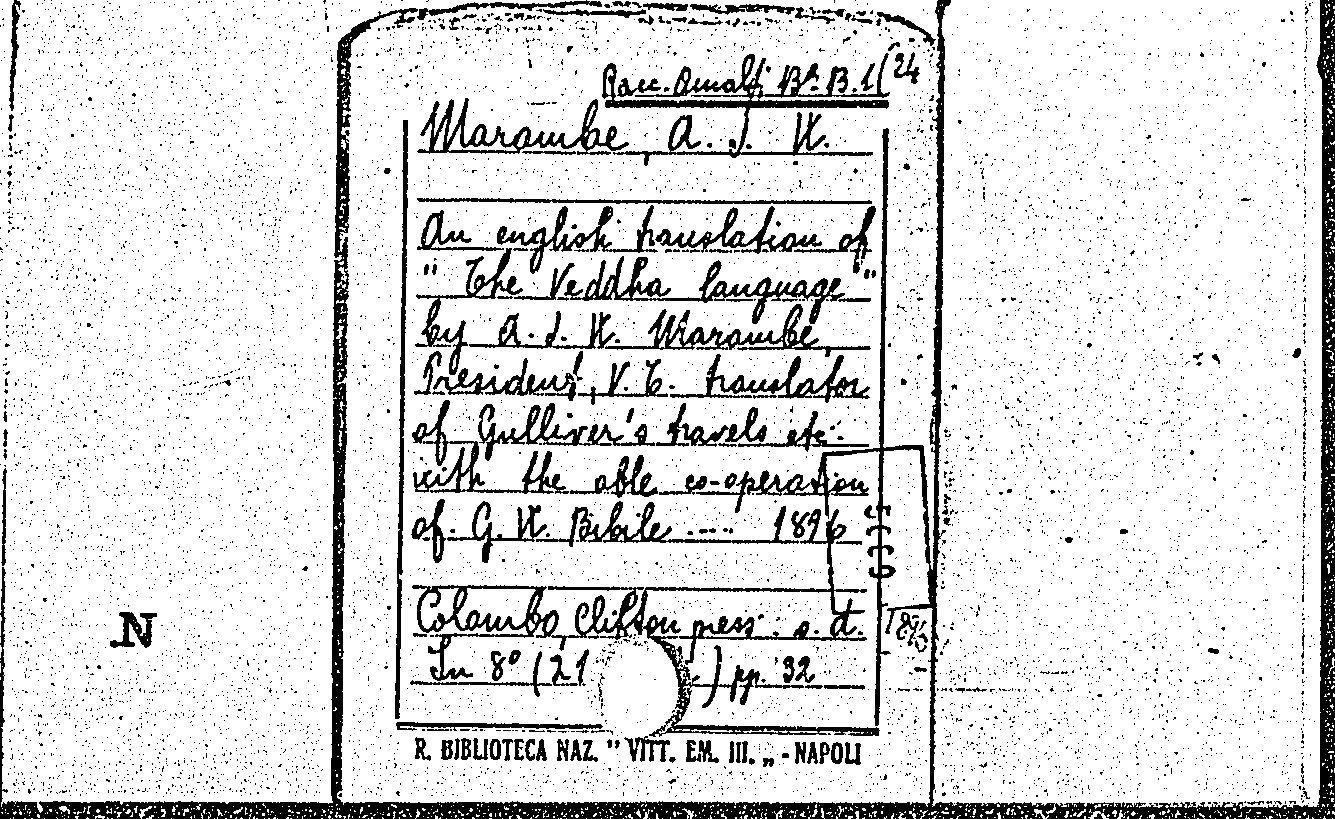 Racc. Amalfi B^a B.1(24
Marambe, A. J. W.
An english translation of
" The Veddha language"
by A. J. W. Marambe,
President, V. T. translator
of Gulliver's travels etc.
with the able co-operation
of G. W. Bibile .... 1896
Colombo, Clifton press. s. d.
1896
In 8° (21 ) pp. 32
R. BIBLIOTECA NAZ. " VITT. EM. III. „ - NAPOLI
N